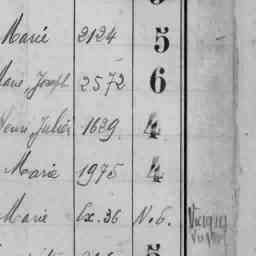 Marie 2124 5
Marie, Joseph 2572 6
Henri Julien 1629 4
Marie 1975 4
Marie Ex. 36 No. 6.
5